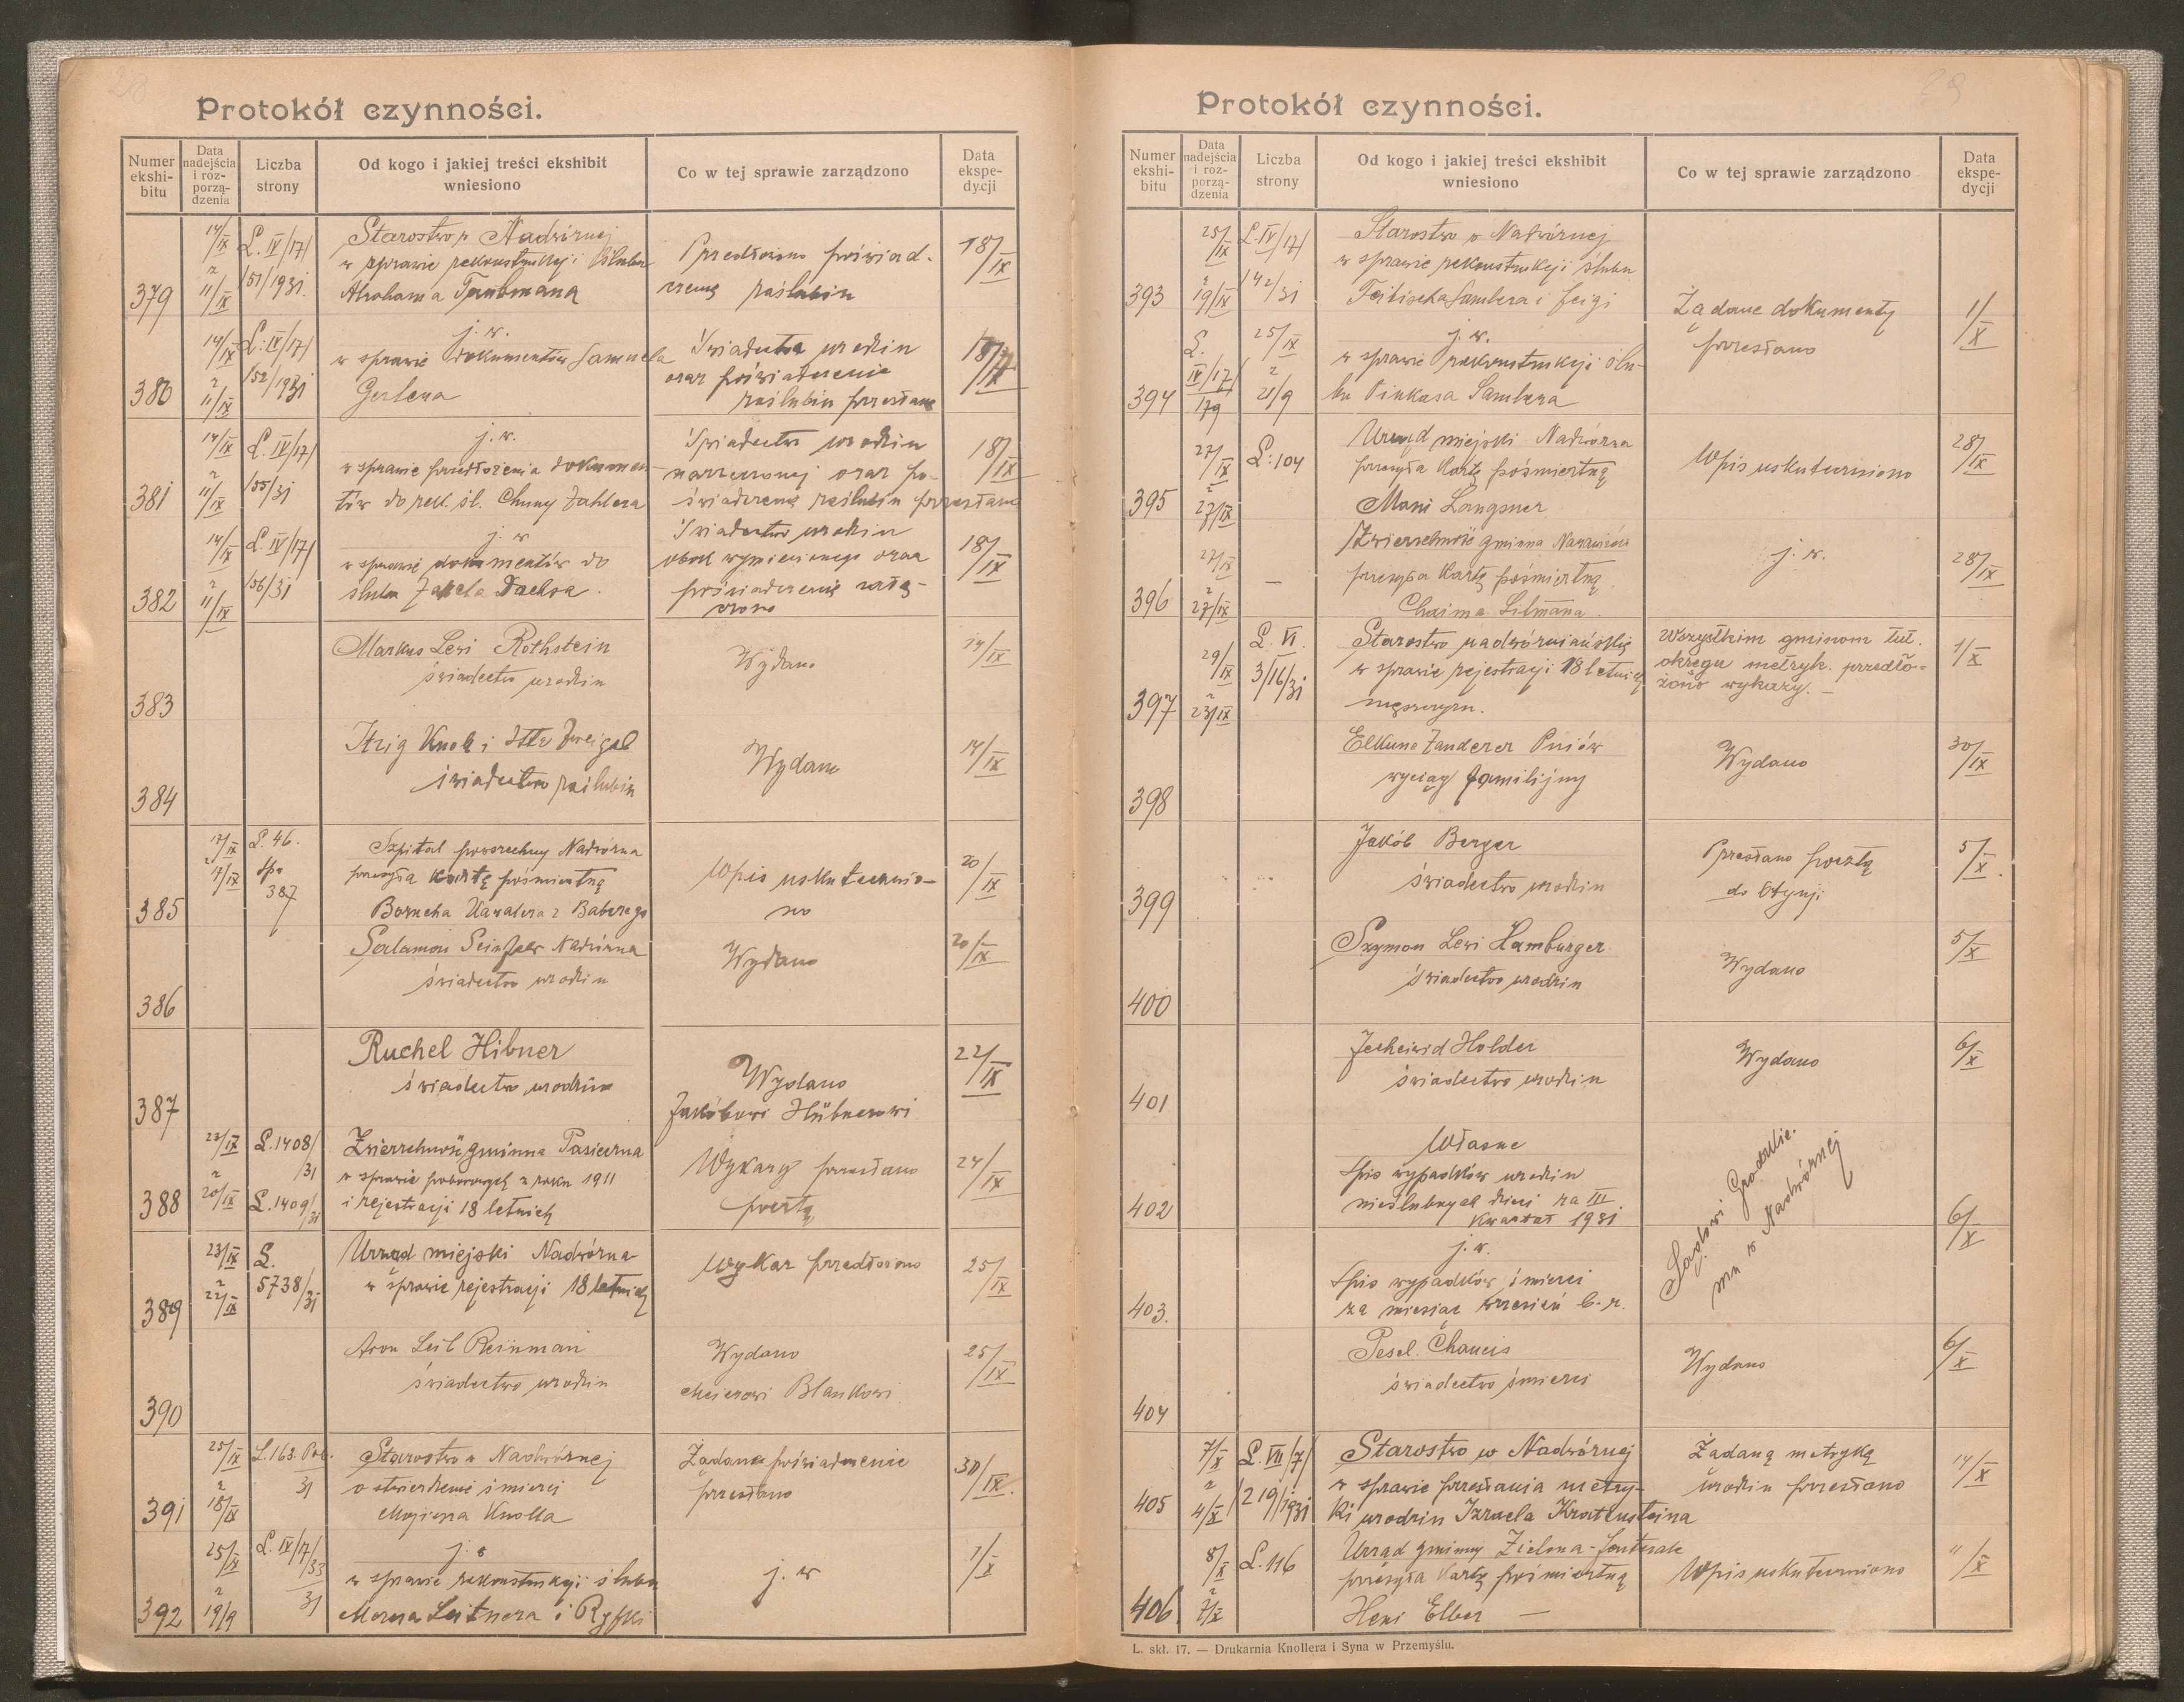 28
Protokół czynności.
Numer ekshi-bitu
Data nadejścia i roz-porzą-dzenia
Liczba strony
Od kogo i jakiej treści ekshibit wniesiono
Co w tej sprawie zarządzono
Data ekspe-dycji
379 14/IX z 11/IX L. IV/17/ 151/1931.
Starostwo w Nadwórnej
w sprawie rekonstrukcji ślubu
Abrahama Taubmana
Przedłożono poświad-
czenie zaślubin
18/IX
380 14/IX z 11/IX L: IV/17/ 152/1931
j. w.
w sprawie dokumentów Samuela
Gerlena
Świadectwa urodzin
oraz poświadczenie
zaślubin przesłane
18/IX
381 14/IX z 11/IX L. IV/17/ 155/31
j. w.
w sprawie przedłożenia dokumen-
tów do rek. śl. Chuny Zahlera
Świadectwo urodzin
narzeczonej oraz po-
świadczenie zaślubin przesłane
18/IX
382 14/IX z 11/IX L. IV/17/ 156/31
j. w
w sprawie dokumentów do
ślubu Dachsa
Świadectwo urodzin
obok wymienionego oraz
poświadczenie załą-
czono
18/IX
383
Markus Lewi Rothstein
świadectwo urodzin
Wydano
14/IX
384
Itzig Knoll i Itte Zweigel
świadectwo zaślubin
Wydano
14/IX
385 17/IX z 17/IX L. 46. 387
Szpital powszechny Nadwórna
przesyła kartę pośmiertną
Borucha Kawalera z Babczego
Wpis uskutecznio-
no
20/IX
386
Salamon Nadwórna
świadectwo urodzin
Wydano
20/IX
387
Ruchel Hibner
świadectwo urodzin
Wydano
Jakóbowi Hübnerowi
22/IX
388 23/IX z 20/IX L. 1408/31 L. 1409/31
Zwierzchność gminna Pasieczna
w sprawie poborowych z roku 1911
i rejestracji 18 letnich
Wykazy przesłano
pocztą
24/IX
389 23/IX z 22/IX L. 5738/31
Urząd miejski Nadwórna
w sprawie rejestracji 18 letnich
Wykaz przedłożono
25/IX
390
Aron Leib Reinman
świadectwo urodzin
Wydano
Meierowi Blankowi
25/IX
391 25/IX z 18/IX L. 163. Pob. 31
Starostwo w Nadwórnej
o stwierdzenie śmierci
Mojżesza Knolla
Żądane poświadczenie
przesłano
30/IX.
392 25/IX z 19/9 L. IV/17/33 31
j. w
w sprawie rekonstrukcji ślubu
Mozesa Leitnera i Ryfki
j. w
1/X
29
Protokół czynności.
Numer ekshi-bitu
Data nadejścia i roz-porzą-dzenia
Liczba strony
Od kogo i jakiej treści ekshibit wniesiono
Co w tej sprawie zarządzono
Data ekspe-dycji
393 25/IX z 19/IX L. IV/17/ 142/31
Starostwo w Nadwórnej
w sprawie rekonstrukcji ślubu
Feitischa Sambera i Feigi
Żądane dokumenty
przesłano
1/X
394 L. IV/17/179 25/IX z 21/9
j. w.
w sprawie rekonstrukcji ślu-
bu Pinkasa Sambera
395 27/IX z 27/IX L: 104
Urząd miejski Nadwórna
przesyła kartę pośmiertną
Mani Langsner
Wpis uskuteczniono
28/IX
396 27/IX z 27/IX —
Zwierzchność gminna
przesyła kartę pośmiertną
Chaima Litmana
j. w.
28/IX
397 29/IX z 23/IX L. VI. 3/16/31
Starostwo nadwórniańskie
w sprawie rejestracji 18 letnich
mężczyzn.
Wszystkim gminom tut.
okręgu metryk. przedło-
żono wykazy. —
1/X
398
Elkune Zanderer Pniów
wyciąg familijny
Wydano
30/IX
399
Jakób Berger
świadectwo urodzin
Przesłano pocztą
do Otynji
5/X.
400
Szymon Lewi Hamburger
świadectwo urodzin
Wydano
5/X
401
Holder
świadectwo urodzin
Wydano
6/X
402
Własne
Spis wypadków urodzin
nieślubnych dzieci za III
kwartał 1931
Sądowi Grodzkie-
mu w Nadwórnej
6/X
403.
j. w.
Spis wypadków śmierci
za miesiąc wrzesień b. r.
404
Pesel Chaucis
świadectwo śmierci
Wydano
6/X
405 7/X z 4/X L. VII/7/ 219/1931
Starostwo w Nadwórnej
w sprawie przesłania metry-
ki urodzin Izraela Krattusteina
Żądaną metrykę
urodzin przesłano
14/X
406. 8/X z 7/X L. 116
Urząd gminny Zielona-
przesyła kartę pośmiertną
Heni Elber —
Wpis uskuteczniono
11/X
L. skł. 17. — Drukarnia Knollera i Syna w Przemyślu.